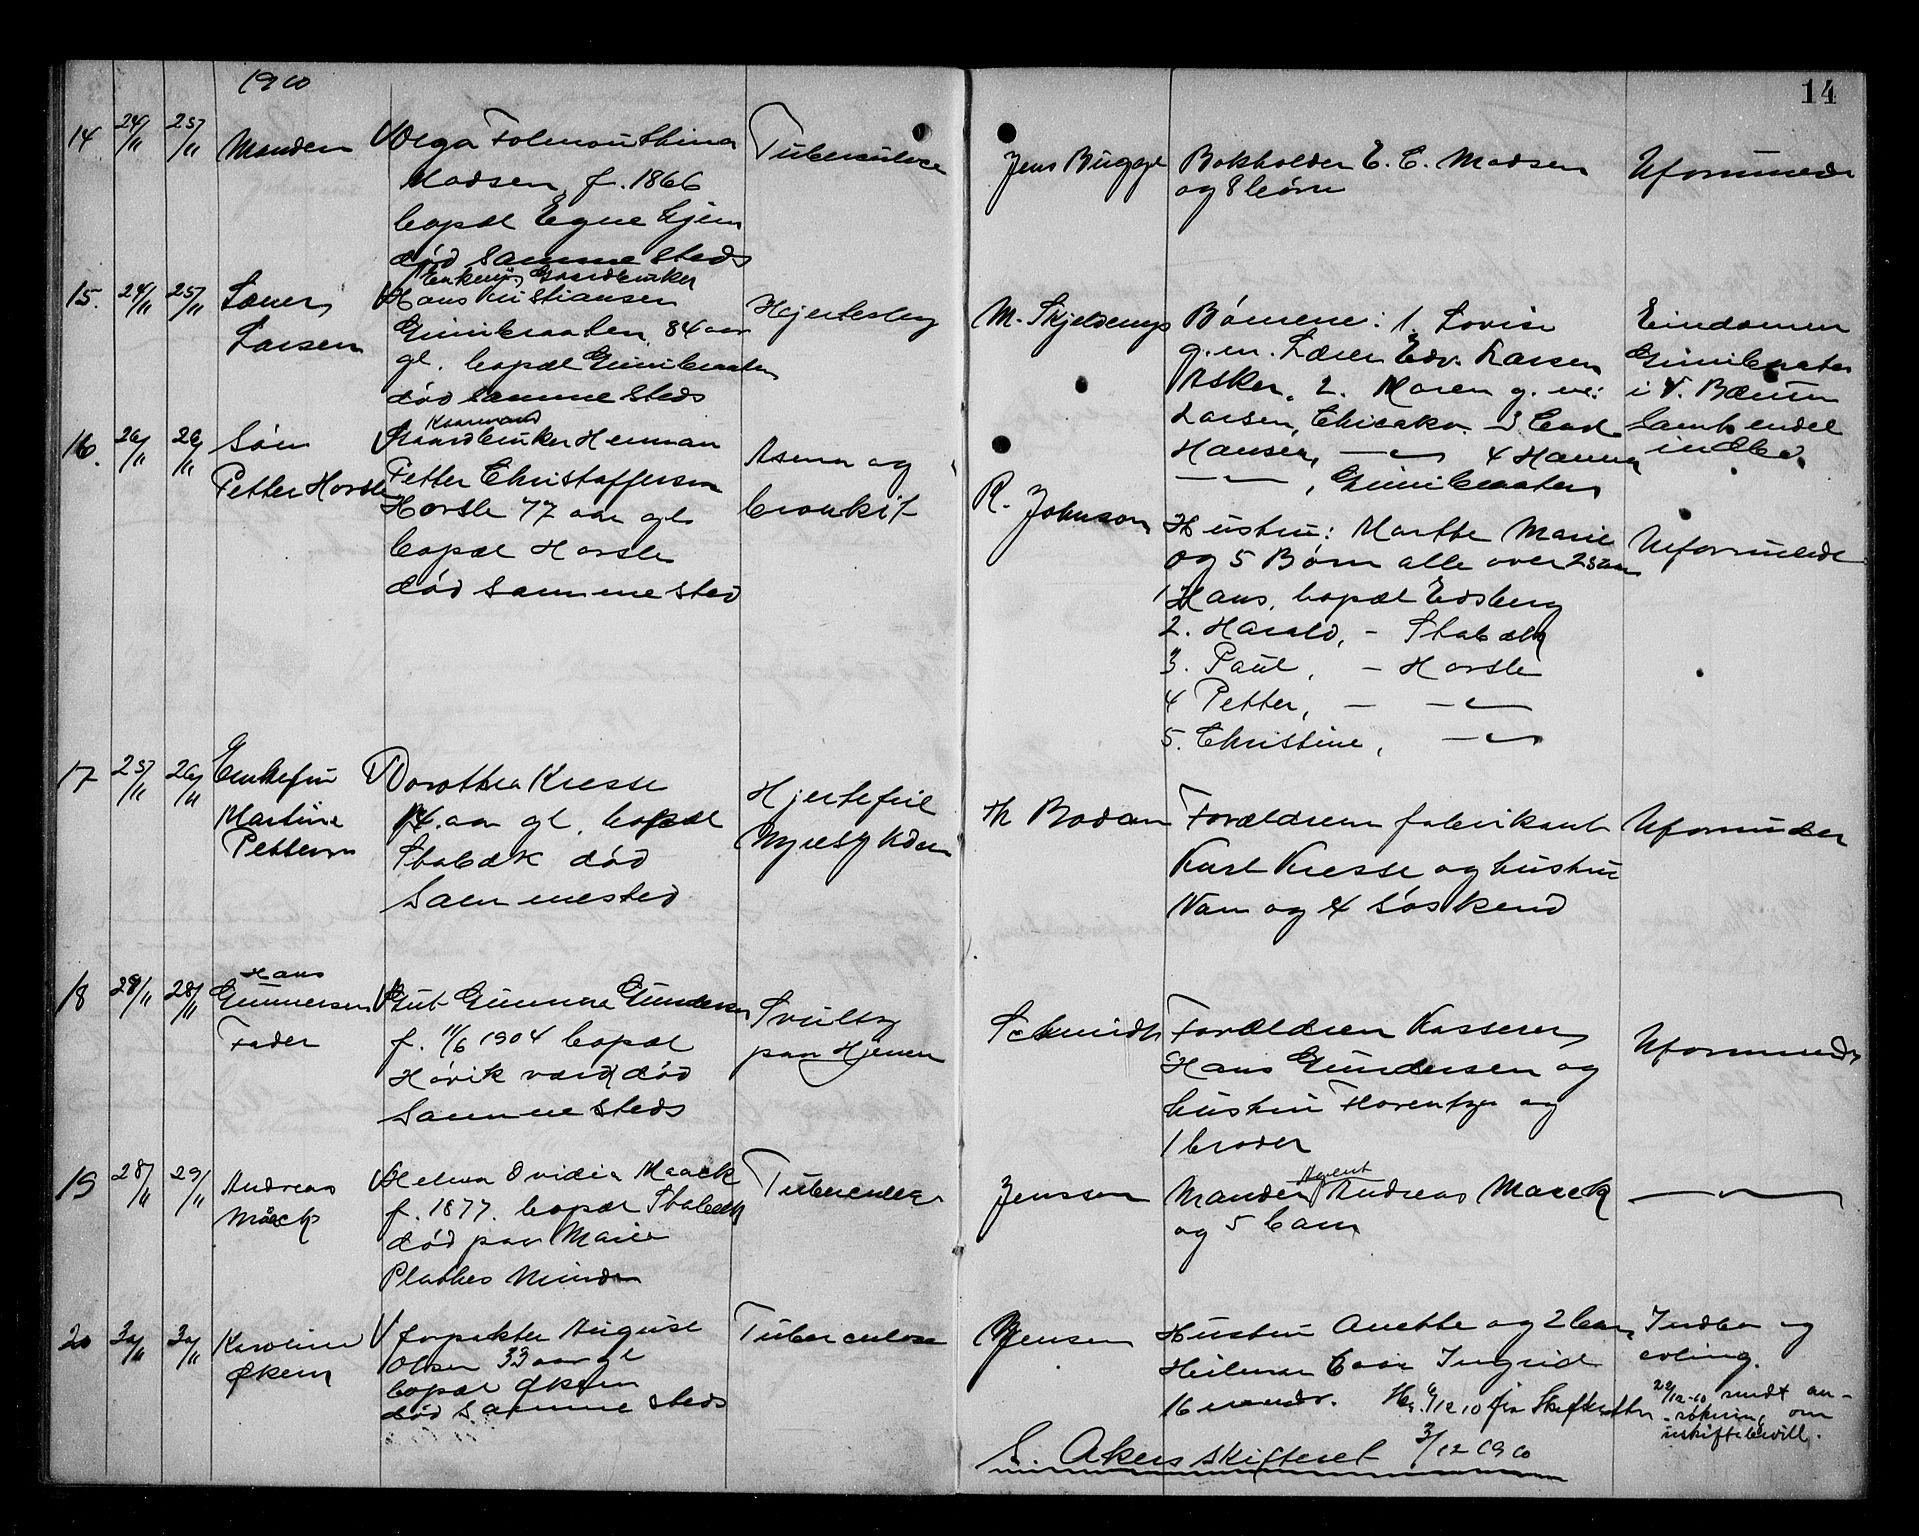 1910
14
14 24/11 25/11 Manden
Olga
Madsen, f. 1866
bopæl Egne Hjem
død sammesteds
Tuberculose
Jens Bugge
Bokholder E. C. Madsen
og 8 børn
Uformuende
15. 24/11 25/11
Larsen
Enkem. Gaardbruker
Hans Kristiansen
Grinibraaten, 84 aar
gl. bopæl Grinibraaten
død sammesteds
Hjerteslag
M. Skjeldrups
Børnene: 1. Lovise
g. m. Lærer Edv. Larsen
Asker, 2. Maren g. m.
Larsen, Chicako. 3 Carl
Hansen, — 4 Hanna
— , Grinibraaten
Eiendomen
Grinibraaten
i V. Bærum
Samt endel
indbo.
16. 26/11 26/11 Søn
Petter Horsle
Kaarmand
Gaardbruker Herman
Petter Christoffersen
Horsle 77 aar gl.
bopæl Horsle
død sammested
Asma og
bronkit
R. Johnson
Hustru: Marthe Marie
og 5 Børn alle over 25 aar
1 Hans, bopæl Edsberg
2. Harald, - Stabæk
3. Paul, - Horsle
4 Petter, — —
5. Christine, —
Uformuende
17 25/11 26/11 Enkefru
Martine
Pettersen
Dorothea Kresse
14 aar gl. bopæl
Stabæk død
Sammested
Hjertefeil
Nyresykdom
Th Bodom
Forældrene fabrikant
Karl Kresse og hustru
og 4 søskend
Uformuende
18 28/11 28/11 Hans
Gunnersen
Fader
Gut Gunnar Gundersen
f. 11/6 1904 bopæl
Høvik værk død
Sammesteds
Svulst
paa Hjernen
Schmidt
Forældrene Kasserer
Hans Gundersen og
hustru Florentze og
1 broder
Uformuende
19 28/11 29/11 Andreas
Maack
Helma Ovidia Maack
f. 1877. bopæl Stabæk
død paa Marie
Plathes Minde
Tuberculose
Jenssen
Manden Agent Andreas Maack
og 5 barn
—
20 30/11 30/11 Karoline
Økern
forpakter August
Olsen 33 aar gl
bopæl Økern
død sammesteds
Tuberculose
Jensen
Hustru Anette og 2 barn
Hilmar 6 aar Ingrid
16 maander.
Indbo og
avling.
22/12-10 sendt an-
søkning om
uskiftebevill.
S. Akers skifteret 3/12 1910